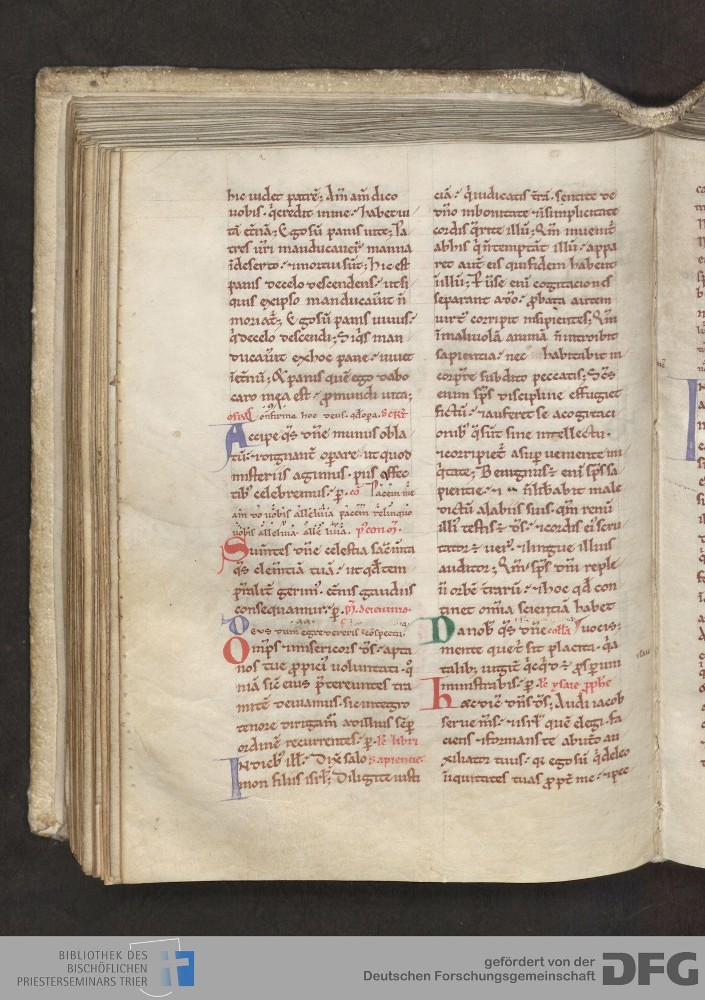 hic uidet patrē; Am̄ am̄ dico
uobis. q̄ credit in me. habet ui
tā et̄nā; Ego sū panis uite; Pa
tres ur̄i manducauer̄ manna
ī deserto. ⁊ mortui sūt; hic est
panis de celo descendens. ut si
quis ex ipso manducauit n̄
moriat̄; Ego sū panis uiuus.
q̄ de celo descendi; Si q̄s man
ducauit ex hoc pane. uiuet
ī et̄nū; Et panis quē ego dabo
caro mea est. p̄ mundi uita;
Confirma hoc deus. qd̄ opa. Secr̄t
Accipe q̄s dn̄e munus obla
tū. ⁊ dignant̄ opare. ut quod
misteriis agimus. piis effec
tib; celebremus. p. cō Pacem me
am do uobis alleluia pacem relinquo
uobis alleluia. alleluia. p̄ con oꝫ.
Sumtes dn̄e celestia sac̄mta
q̄s clem̄tiā tuā. ut qd̄ tem
p̄alit̄ gerim̄. et̄nis gaudiis
consequamur. p.
Deus dum egredereris ī cōspectu
Omp̄s ⁊ misericors d̄s. apta
nos tue propiciꝰ uoluntati. q̄
niā sic eiꝰ p̄tereuntes tra
mitē deuiamus. sic integro
tenore dirigam̄ ad illius sēp
ordinē recurrentes. p. lc̄ libri
In dieb; ill̄. Dix̄ salo sapientie
mon filius isrl̄; Diligite iusti
ciā. q̄ iudicatis t̄rā. sentite de
dn̄o in bonitate ⁊ ī simplicitate
cordis q̄rite illū; Qm̄ inuenit̄
ab his q̄ n̄ temptāt illū. appa
ret aut̄ eis qui fidem habent
ī illū; Peruse enī cogitaciones
separant a dō. probata autem
uirtꝰ corripit insipientes; Qm̄
ī maliuolā animā n̄ introibit
sapiencia. nec habitabit in
corpre subdito peccatis; Sc̄s
enim sp̄s discipline effugiet
fictū. ⁊ auferet se a cogitaci
onib; q̄ sūt sine intellectu.
⁊ corripiet̄ a supueniente in
iq̄tate; Benignus ē enī sp̄s sa
piencie. ⁊ n̄ libabit male
dictū a labiis suis. qm̄ renū
illiꝰ testis ē d̄s. ⁊ cordis eiꝰ scru
tator ē uerꝰ. ⁊ lingue illius
auditor; Qm̄ sp̄s dn̄i reple
uit orbē trarū. ⁊ hoc qd̄ con
tinet omnia scientiā habet
Da nob̄ q̄s dn̄e colla uocis;
mente que t̄ sit placita.
talib; iugit̄ q̄cq̄d ē prosperum
ministrabis. p. lc̄ ysaie prophē
Hec dic̄ dn̄s d̄s; Audi iacob
serue mꝰs. ⁊ isrl̄ quē elegi. fa
ciens ⁊ formans te ab utero au
xiliator tuus. q; ego sū q̄ deleo
iniquitates tuas prop̄t me. ⁊ pec
BIBLIOTHEK DES
BISCHÖFLICHEN
PRIESTERSEMINARS TRIER
gefördert von der
Deutschen Forschungsgemeinschaft
DFG